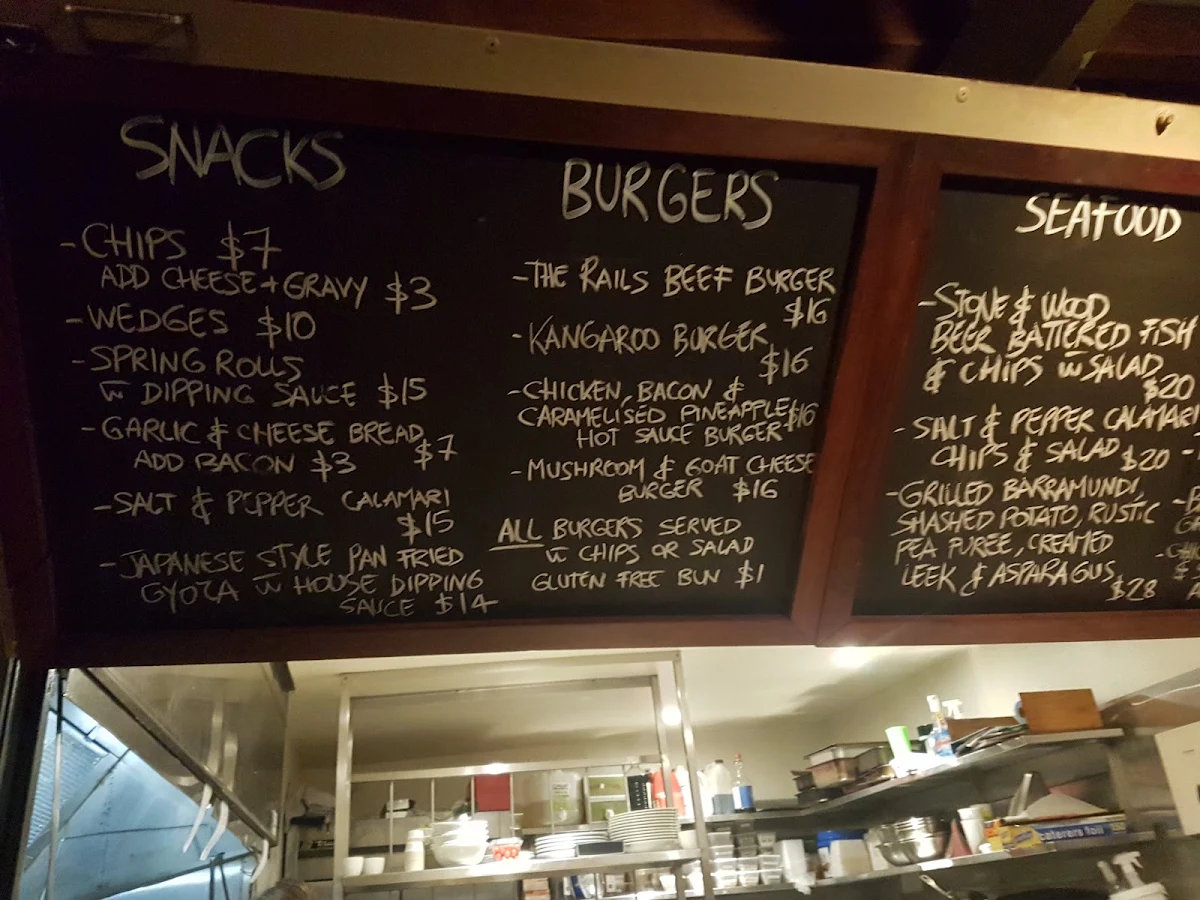 SNACKS
- CHIPS $7
ADD CHEESE + GRAVY $3
- WEDGES $10
- SPRING ROLLS
w̄ DIPPING SAUCE $15
- GARLIC & CHEESE BREAD
$7
ADD BACON $3
- SALT & PEPPER CALAMARI
$15
- JAPANESE STYLE PAN FRIED
GYOZA w̄ HOUSE DIPPING
SAUCE $14
BURGERS
- THE RAILS BEEF BURGER
$16
- KANGAROO BURGER
$16
- CHICKEN, BACON &
CARAMELISED PINEAPPLE $16
HOT SAUCE BURGER
- MUSHROOM & GOAT CHEESE
BURGER $16
ALL BURGERS SERVED
w̄ CHIPS OR SALAD
GLUTEN FREE BUN $1
SEAFOOD
- STONE & WOOD
BEER BATTERED FISH
& CHIPS w̄ SALAD
$20
- SALT & PEPPER CALAMARI
CHIPS & SALAD $20
- GRILLED BARRAMUNDI,
SMASHED POTATO, RUSTIC
PEA PUREE, CREAMED
LEEK & ASPARAGUS
$28
caterers foil